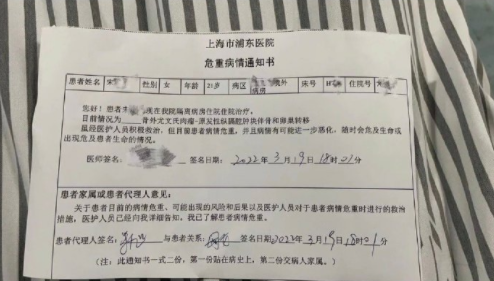 上海市浦东医院
危重病情通知书
患者姓名 宋 性别 女 年龄 21岁 病区 外 病房 床号 住院号
您好！患者 现在我院隔离病房住院治疗。
目前情况为 骨外尤文氏肉瘤-原发性纵隔腔肿块伴骨和卵巢转移
虽经医护人员积极救治，但目前患者病情危重，并且病情有可能进一步恶化，随时会危及生命或
出现危及患者生命的情况。
医师签名： 签名日期： 2022年3月19日18时01分
患者家属或患者代理人意见：
关于患者目前的病情危重、可能出现的风险和后果以及医护人员对于患者病情危重时进行的救治
措施，医护人员已经向我详细告知。我已了解患者病情危重。
患者代理人签名： 与患者关系： 签名日期2022年3月19日18时01分
（注：此通知书一式二份，第一份贴在病史上，第二份交病人家属。）